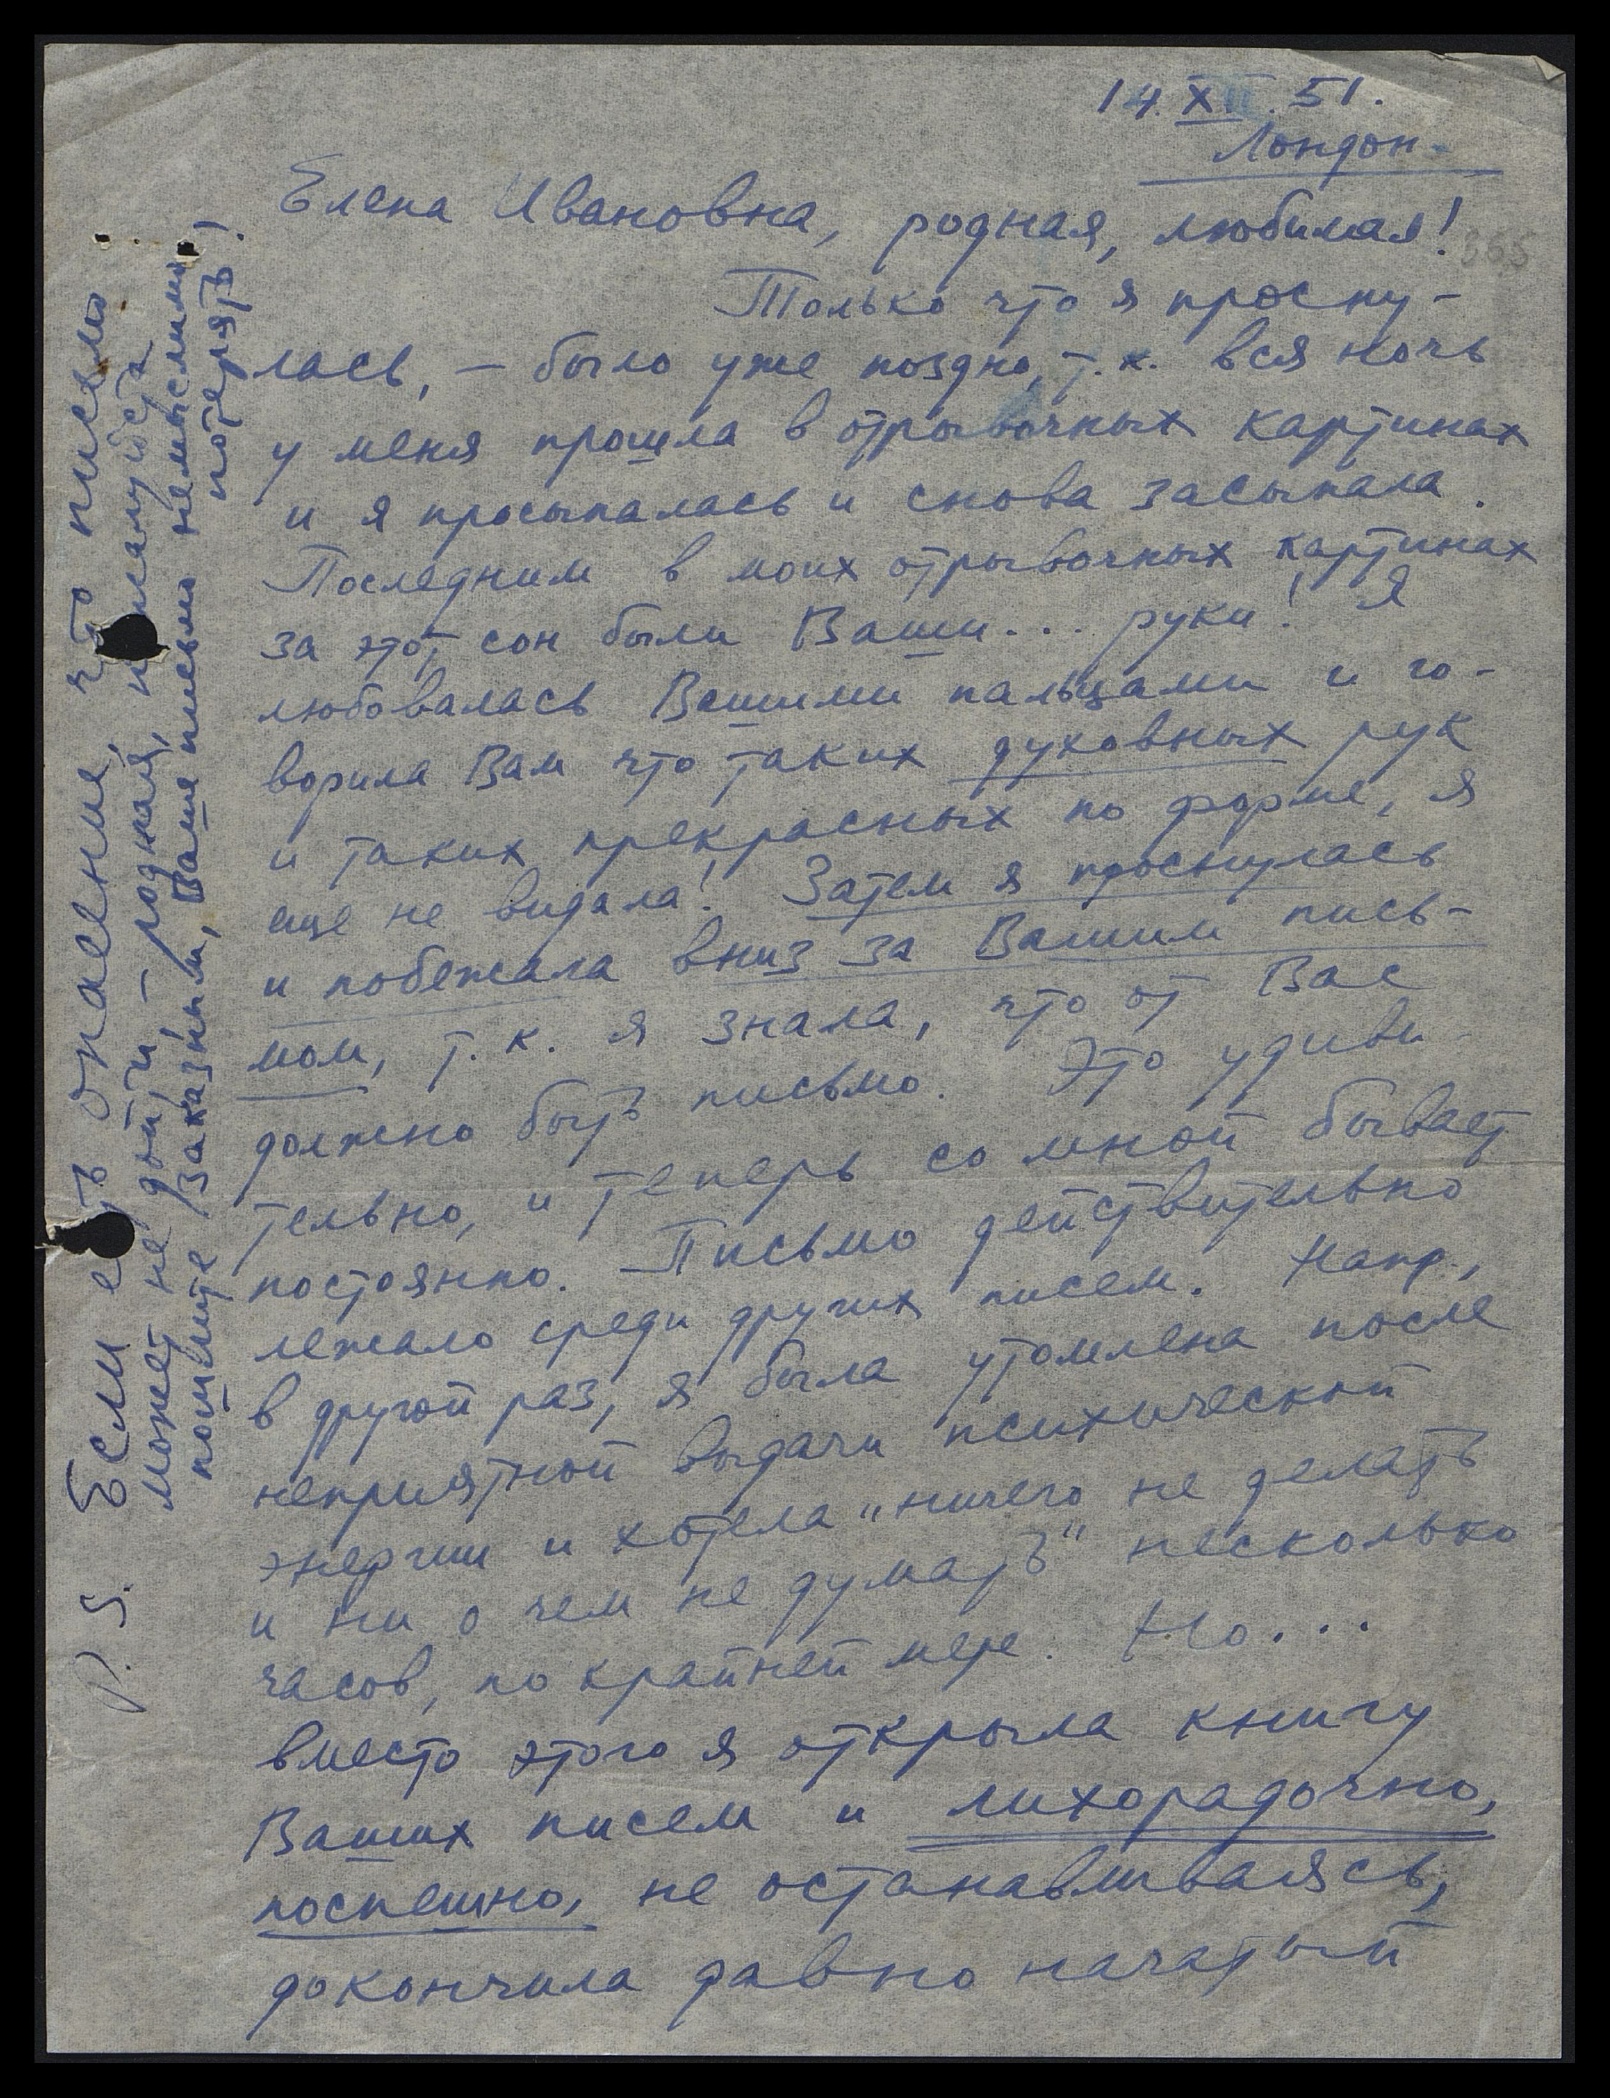 14.XII.51.
Лондон.
365
Елена Ивановна, родная, любимая!
Только что я просну-
лась, – было уже поздно, т.к. вся ночь
у меня прошла в отрывочных картинах
и я просыпалась и снова засыпала.
Последним в моих отрывочных картинах
за этот сон были Ваши... руки! Я
любовалась Вашими пальцами и го-
ворила Вам что таких духовных рук
и таких прекрасных по форме, я
еще не видала! Затем я проснулась
и побежала вниз за Вашим пись-
мом, т.к. я знала, что от Вас
должно быть письмо. Это удиви
тельно, и теперь со мной бывает
постоянно. Письмо действительно
лежало среди других писем. Напр.,
в другой раз, я была утомлена после
неприятной выдачи психической
энергии и хотела „ничего не делать
и ни о чем не думать" несколько
часов, по крайней мере. Но...
вместо этого я открыла книгу
Ваших писем и лихорадочно,
поспешно, не останавливаясь,
докончила давно начатый
P.S. Если есть опасение, что письмо
может не дойти – родная, пожалуйста
пошлите заказным, Ваше письмо немыслимо
потерять!